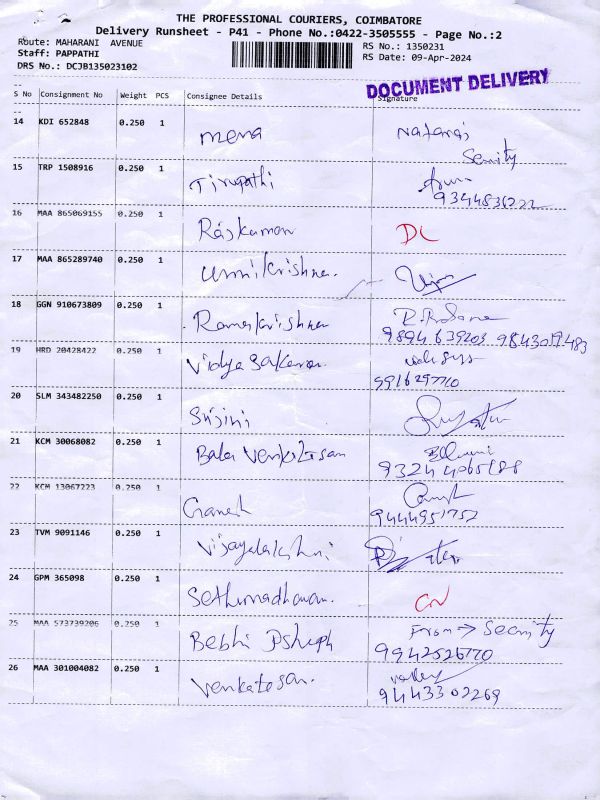 THE PROFESSIONAL COURIERS, COIMBATORE
Delivery Runsheet - P41 - Phone No.:0422-3505555 - Page No.:2
Route: MAHARANI AVENUE
Staff: PAPPATHI
DRS No.: DCJB135023102
RS No.: 1350231
RS Date: 09-Apr-2024
DOCUMENT DELIVERY
S No Consignment No Weight PCS Consignee Details Signature
14 KDI 652848 0.250 1 mena Nataraj
Security
15 TRP 1508916 0.250 1 Tirupathi
16 MAA 865069155 0.250 1 Rajkumar DL
17 MAA 865289740 0.250 1 unnikrishnan.
18 GGN 910673809 0.250 1 Ramakrishnan
9894639203 9843019483
19 HRD 20428422 0.250 1 Vidya Sakaran
9916297710
20 SLM 343482250 0.250 1
21 KCM 30068082 0.250 1 Bala Venkatesan
22 KCM 13067223 0.250 1 Ganesh
9444951752
23 TVM 9091146 0.250 1 Vijayalakshmi
24 GPM 365098 0.250 1 Sethumadhavan.
25 MAA 573739206 0.250 1 From → Security
9942526770
26 MAA 301004082 0.250 1 Venkatesan.
9443302269